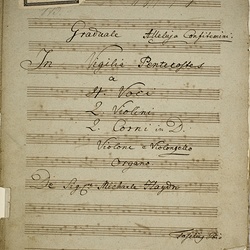 Graduale Alleluja Confitemini.
In Vigilia Pentecostes
a
4 Voci
2 Violini
2. Corni in D.
Violone e Violoncello
Organo
De Sigre Michaele Haydn